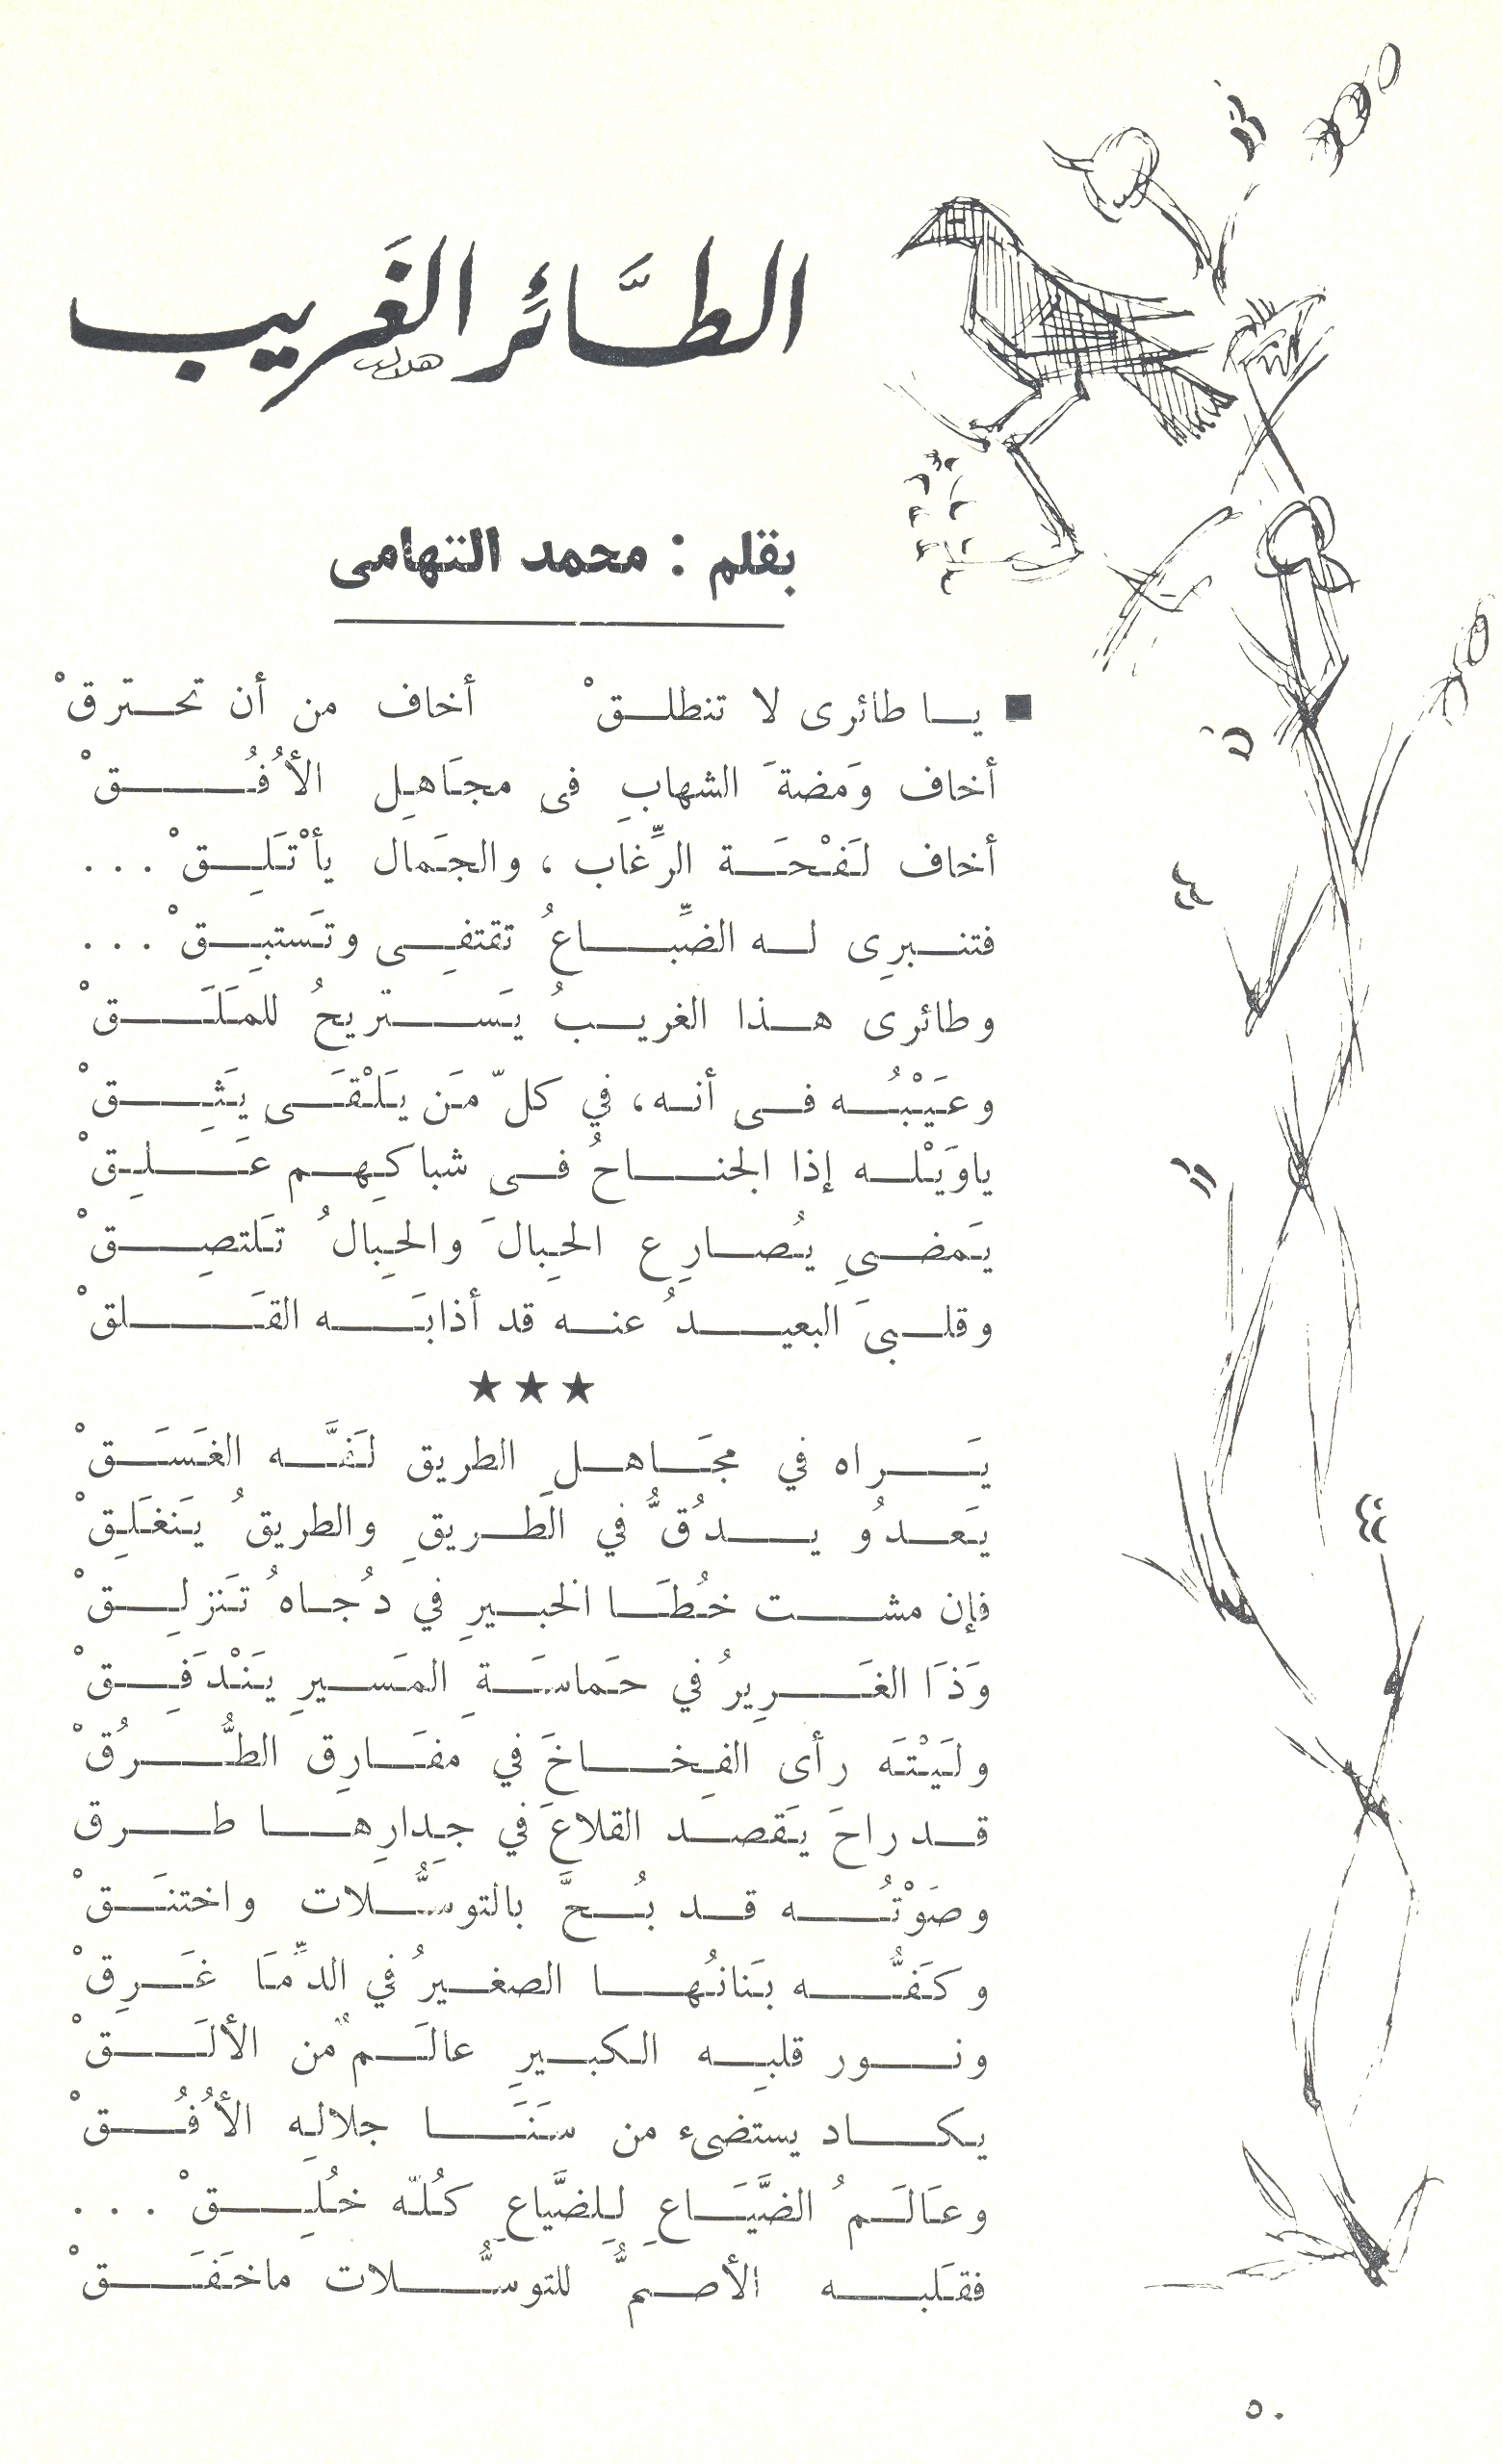 الطَّائر الغَريب
بقلم : محمد التهامى
■ يا طائرى لا تنطلقْ أخاف من أن تحترقْ
أخاف وَمضةَ الشهابِ فى مجَاهِل الأُفُقْ
أخاف لَفْحَة الرِّغاب ، والجَمال يأْتَلِقْ ...
فتنبرِى له الضِّباعُ تقتفِى وتَستبِقْ ...
وطائرى هذا الغريبُ يَستريحُ للمَلَقْ
وعَيْبُه فى أنه، في كلّ مَن يَلْقَى يَثِقْ
ياوَيْله إذا الجناحُ فى شباكِهم عَلِقْ
يَمضىِ يُصارِع الحِبالَ والحِبالُ تَلتصِقْ
وقلبىَ البعيدُ عنه قد أذابَه القَلقْ
★★★
يَراه في مجَاهلِ الطريق لَفَّه الغَسَقْ
يَعدُو يدُقُّ في الطريقِ والطريقُ يَنغَلِقْ
فإن مشت خُطَا الخبيرِ في دُجاهُ تَنزلِقْ
وَذَا الغَرِيرُ في حَماسَةِ المَسيرِ يَنْدَفِقْ
ولَيْتَه رأى الفِخاخَ في مفَارِق الطُّرُقْ
قد راحَ يَقصد القلاعَ في جِدارِها طرق
وصَوْتُه قد بُحَّ بالتوسُّلات واختنَقْ
وكَفُّه بَنانُها الصغيرُ في الدِّمَا غَرِقْ
ونور قلبِه الكبيرِ عالَمٌ من الألَقْ
يكاد يستضىء من سَنَا جلالِه الأُفُقْ
وعَالَمُ الضَّيَاعِ لِلضَّياعِ كُلّه خُلِقْ ...
فقَلبه الأصمُّ للتوسُّلات ماخَفَقْ
٥٠